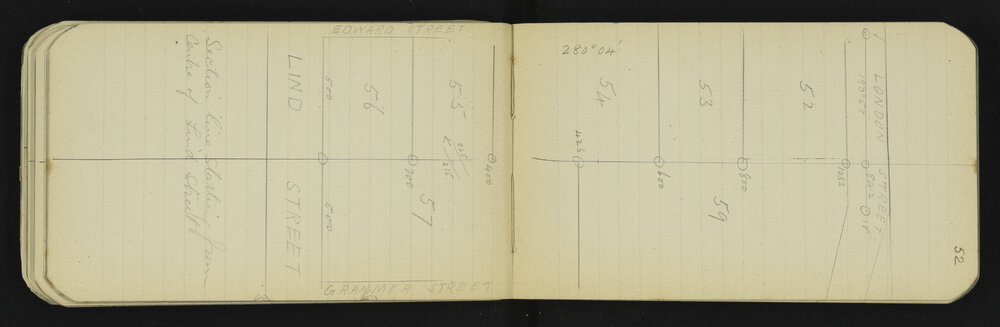 Section line starting from
Centre of Lind Street
LIND STREET
EDWARD STREET
GRAMMER STREET
500
500
56
200
55
57
400
280°04'
54
426
53
600
52
800
59
1022
LONDON STREET
190°57'
52